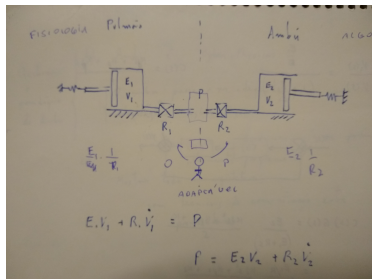 FISIOLOGIA Pulmão Ambú ALGO
E₁
V₁
P
E₂
V₂
R₁ R₂
1/R₁
E₂ 1/R₂
O P
ADAPTÁVEL
E₁V₁ + R₁V̇₁ = P
P = E₂V₂ + R₂V̇₂